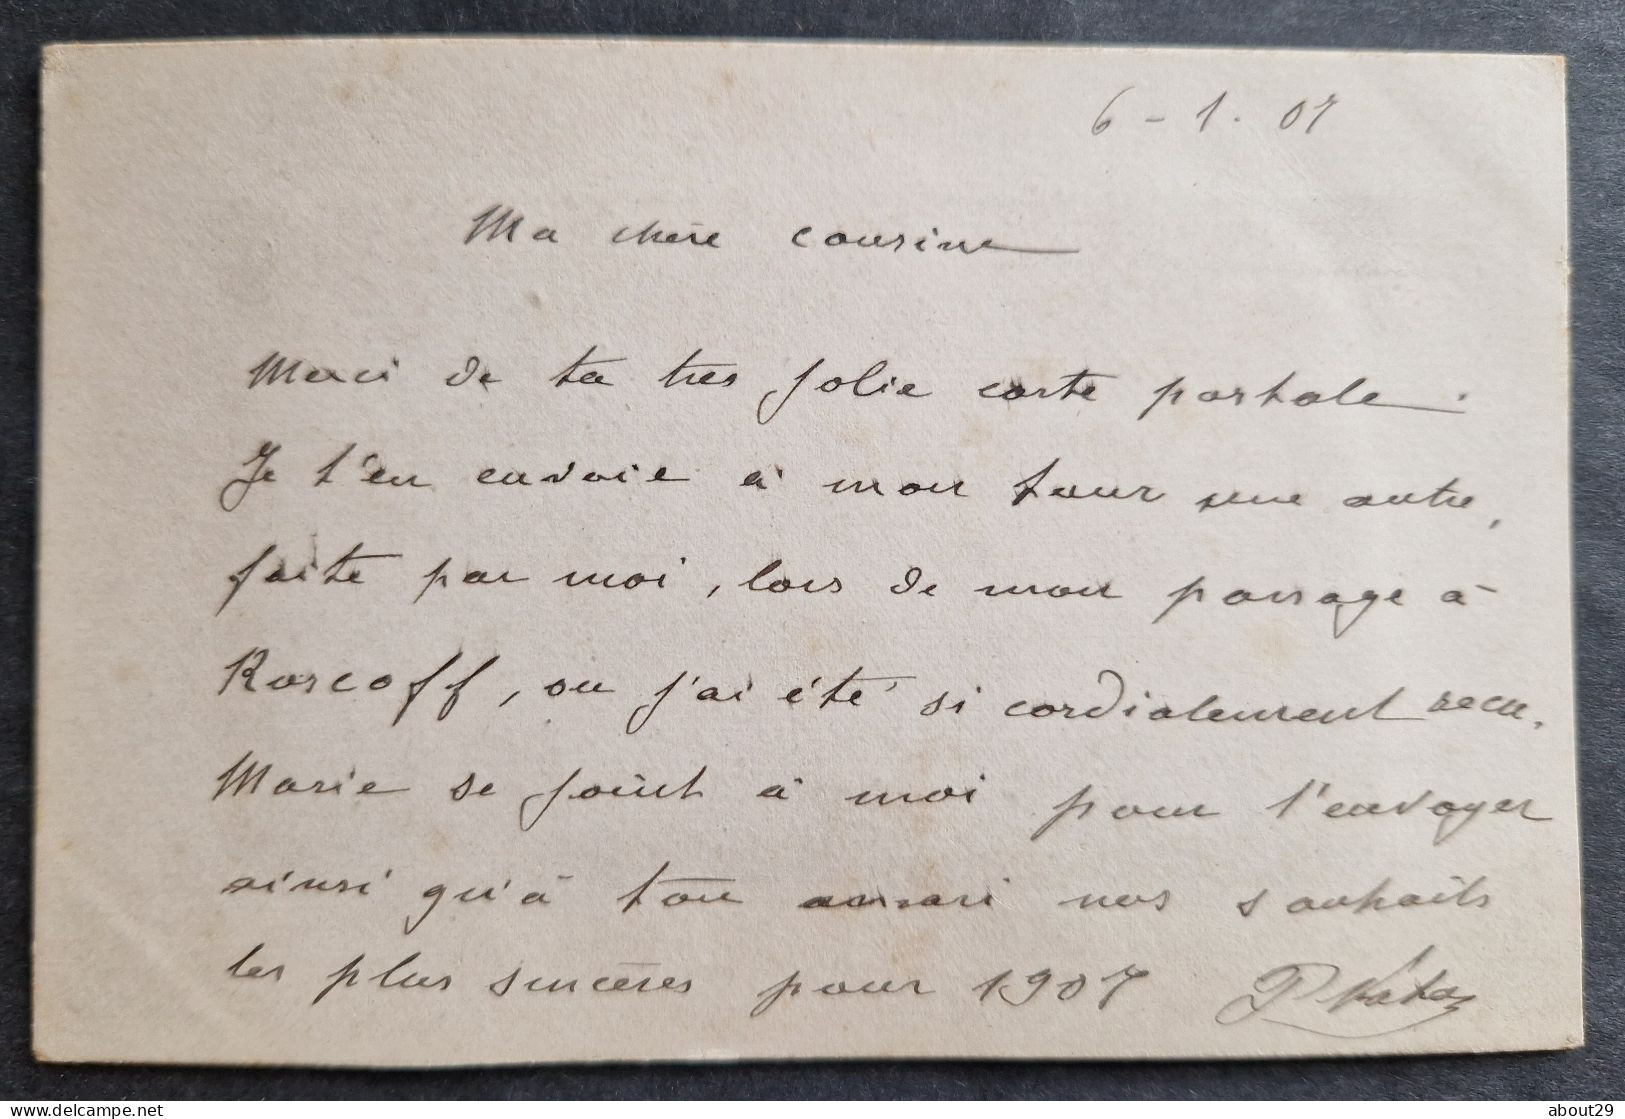 6-1.07
Ma chère cousine
Merci de ta très jolie carte postale.
Je t'en envoie à mon tour une autre,
faite par moi, lors de mon passage à
Roscoff, ou j'ai été si cordialement recu.
Marie se joint à moi pour t'envoyer
ainsi qu'à ton mari nos souhaits
les plus sincères pour 1907
www.delcampe.net
about29